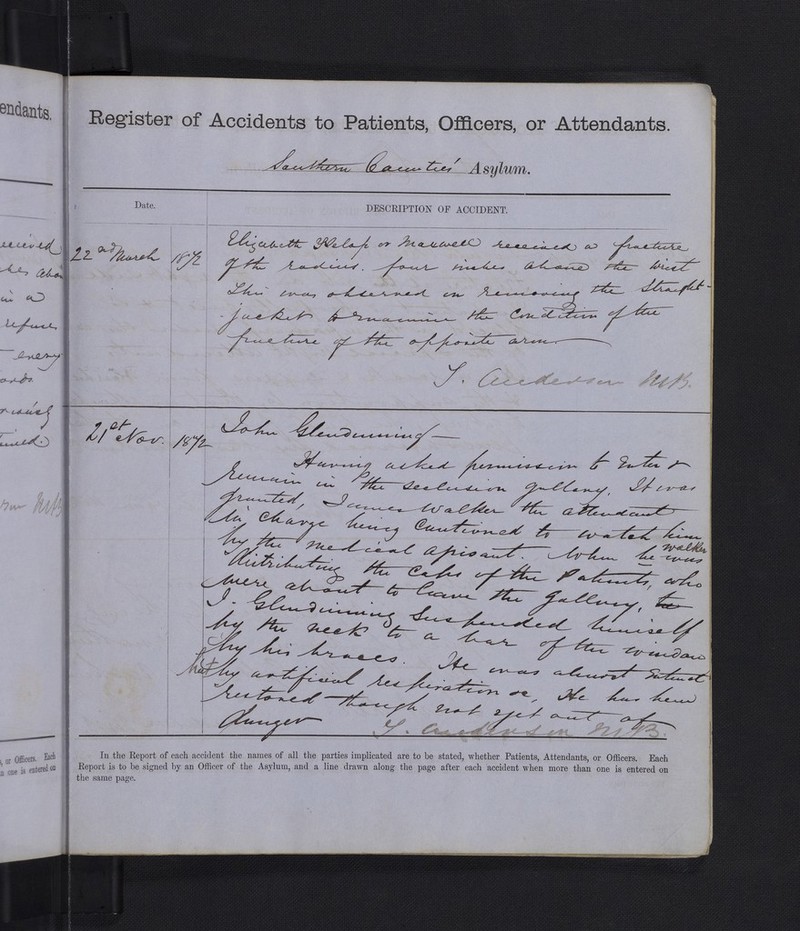 endants.
eceived
abo
in a
refuses
every
Register of Accidents to Patients, Officers, or Attendants.
Southern Counties' Asylum.
Date.
DESCRIPTION OF ACCIDENT.
22nd March 1872
Elizabeth or Maxwell received a fracture
of the radius. four inches above the wrist
This was observed on removing the Straight-
-jacket to examine the Condition of the
fracture of the opposite arm.
T. Anderson MB.
21st Nov. 1872
John Glendinning
Having asked permission to Enter &
remain in the seclusion gallery. It was
granted, James Walker the attendant
in charge being Cautioned to watch him
by the medical Assisant. When he walker was
distributing the Caps of the Patients, who
were about to leave the Gallery,
J. Glendinning Suspended himself
by the neck to a bar of the window
by his braces. He was almost Extinct
but by artificial respiration &c, He has been
restored though not yet out of
danger T. Anderson M.B.
In the Report of each accident the names of all the parties implicated are to be stated, whether Patients, Attendants, or Officers. Each
Report is to be signed by an Officer of the Asylum, and a line drawn along the page after each accident when more than one is entered on
the same page.
or Officers. Each
one is entered on